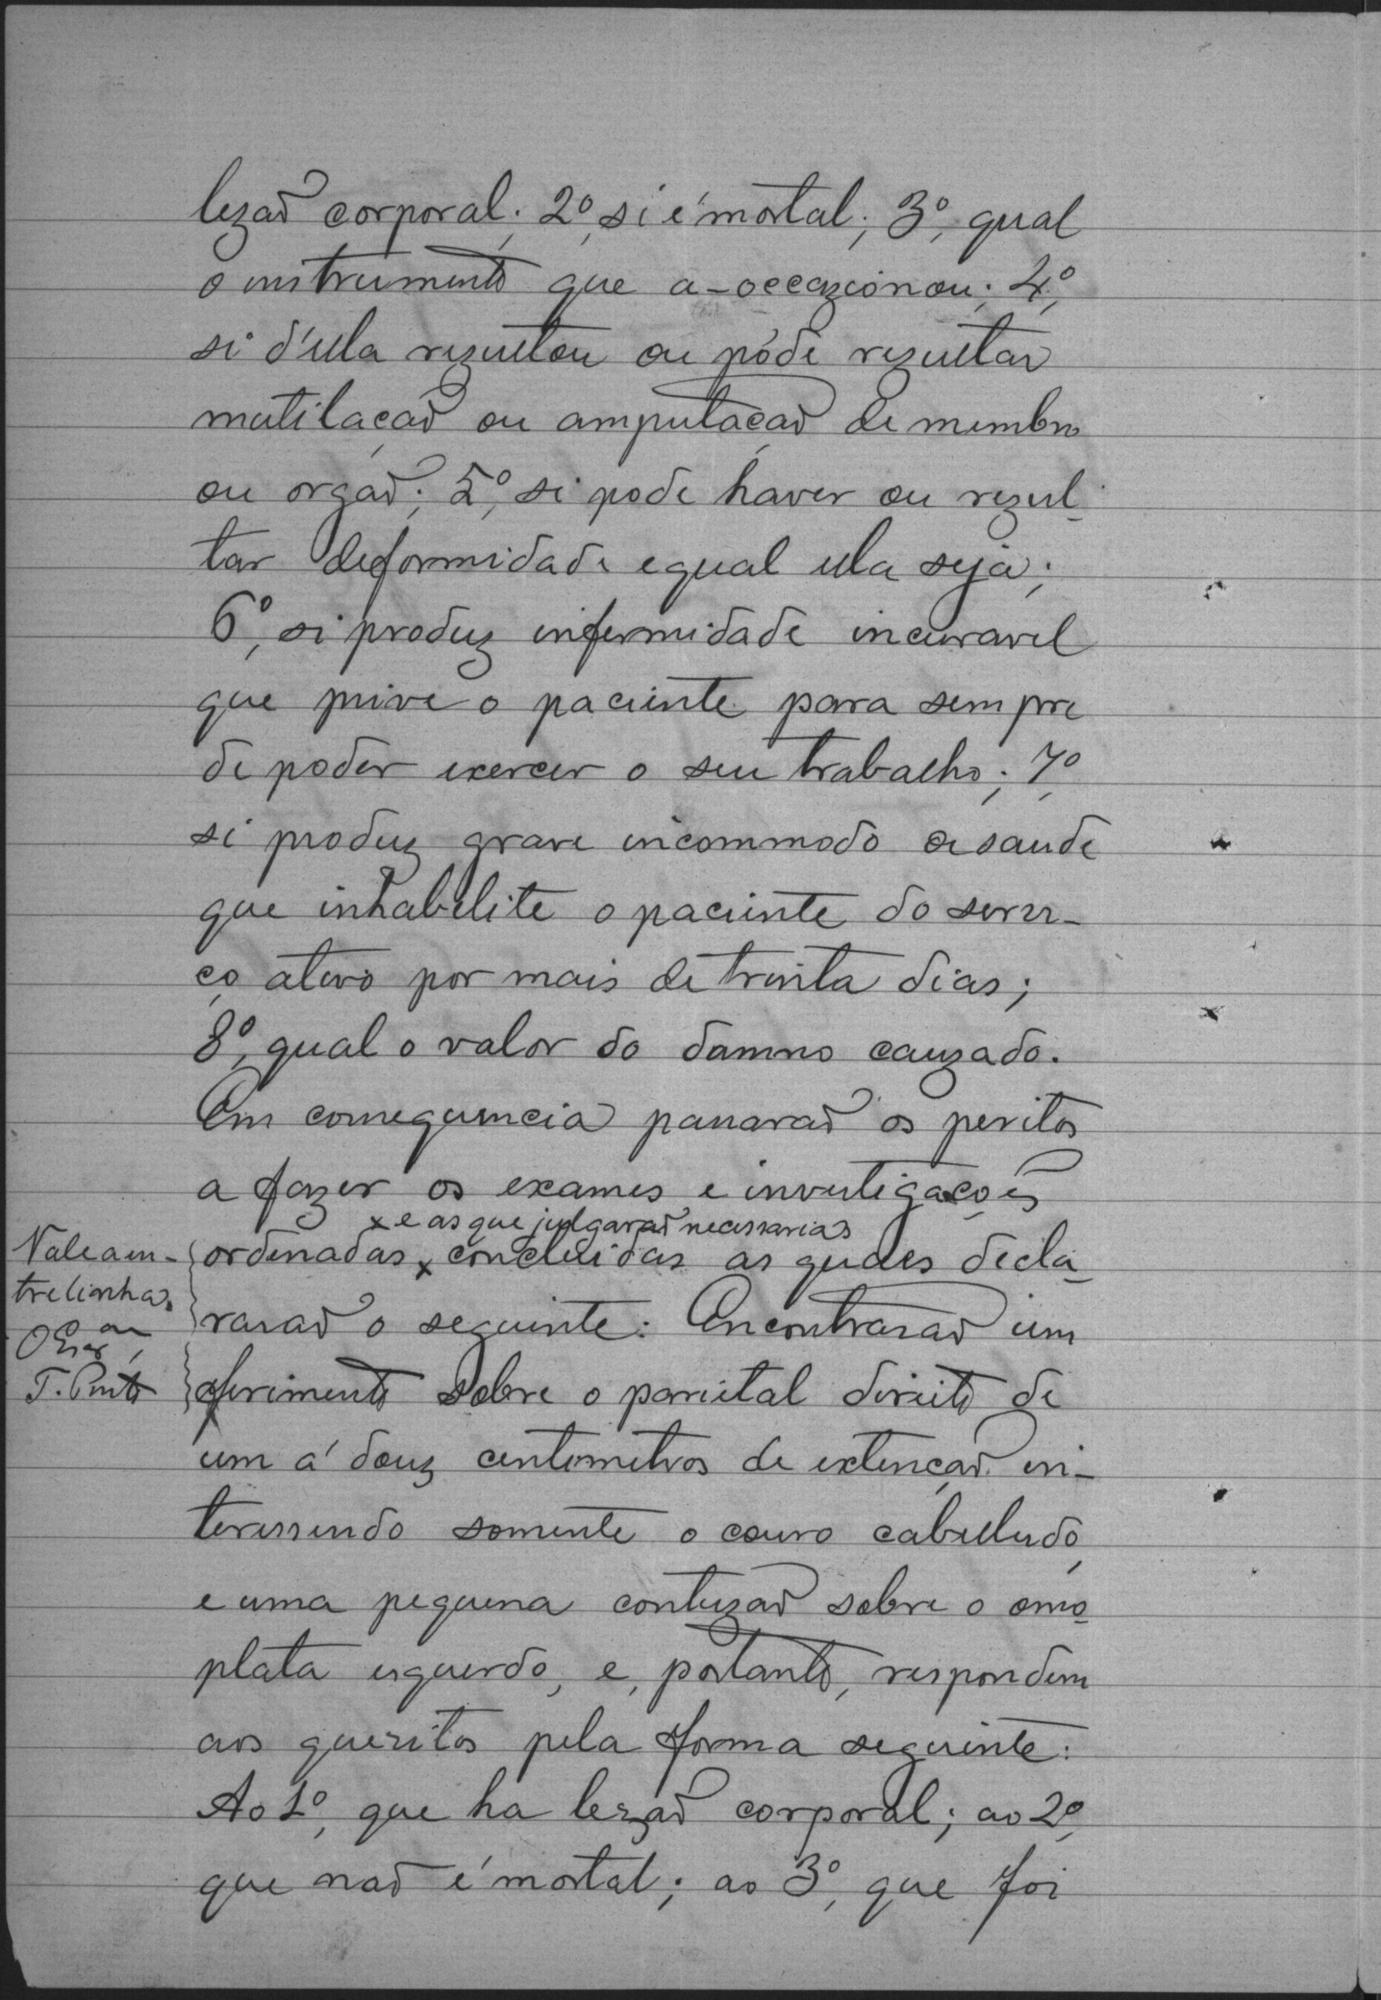 lezaõ corporal; 2º, si é mortal; 3º, qual
o instrumento que a-occazionou; 4º,
si d'ella rezultou ou póde rezultar
mutilaçaõ ou amputaçaõ de membro
ou orgaõ; 5º, si pode haver ou rezul-
tar deformidade e qual ella seja;
6º, si produz infermidade incuravel
que prive o paciente para sempre
de poder exercer o seu trabalho; 7º,
si produz grave incommodo de saude
que inhabilite o paciente do servi-
ço ativo por mais de trinta dias;
8º, qual o valor do damno cauzado.
Em consequencia passaraõ os peritos
a fazer os exames e investigações
x e as que julgaraõ necessarias
Vale a en-
trelinha.
O Escram
T. Pinto
ordenadas x concluidas as quaes decla-
raraõ o seguinte: Encontraraõ um
ferimento sobre o parietal direito de
um á douz centimetros de extençaõ in-
teressendo somente o couro cabelludo,
e uma pequena contuzaõ sobre o omo-
plata esquerdo, e, portanto, respondem
aos quezitos pela forma seguinte:
Ao 1º, que ha lezaõ corporal; ao 2º,
que naõ é mortal; ao 3º, que foi